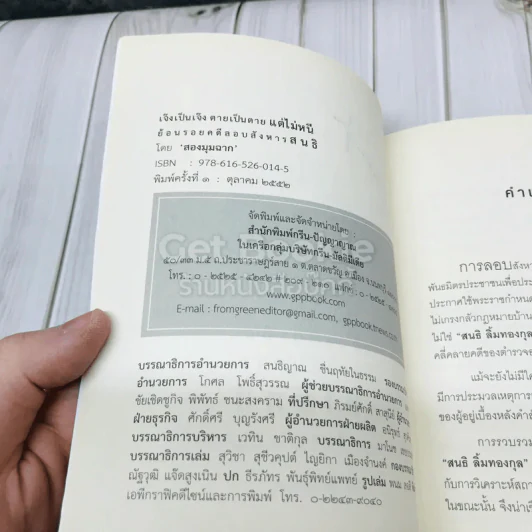 เจ๊งเป็นเจ๊ง ตายเป็นตาย แต่ไม่หนี
ย้อนรอยคดีลอบสังหาร สนธิ
โดย 'สองมุมฉาก'
ISBN : 978-616-526-014-5
พิมพ์ครั้งที่ ๑ : ตุลาคม ๒๕๕๒
จัดพิมพ์และจัดจำหน่ายโดย :
สำนักพิมพ์กรีน-ปัญญาญาณ
ในเครือกลุ่มบริษัทกรีน-มัลติมีเดีย
๕๐/๓๓ ม.๕ ถ.ประชาราษฎร์สาย ๑ ต.ตลาดขวัญ อ.เมือง
โทร. : ๐-๒๕๒๕-๔๒๔๒
www.gppbook.com
E-mail : fromgreeneditor@gmail.com,
บรรณาธิการอำนวยการ สนธิญาณ ชื่นฤทัยในธรรม
อำนวยการ โกศล โพธิ์สุวรรณ ผู้ช่วยบรรณาธิการอำนวยการ
ชัยเชิตชูกิจ พิพัทธ์ ชนะสงคราม ที่ปรึกษา ภิรมย์ศักดิ์ สาสุนีย์
ฝ่ายธุรกิจ ศักดิ์ศรี บุญรังศรี ผู้อำนวยการฝ่ายผลิต
บรรณาธิการบริหาร เวทิน ชาติกุล บรรณาธิการ มาโนช
บรรณาธิการเล่ม สุวิชา สุชีวคุปต์ ไญยิกา เมืองจำนงค์
ณัฐวุฒิ แจ๊ดสูงเนิน ปก ธีรภัทร พันธุ์พิทย์แพทย์ รูปเล่ม
เอพีกราฟิคดีไซน์และการพิมพ์ โทร. ๐-๒๒๔๓-๙๐๔๐
การลอบสังหาร
พันธมิตรประชาชนเพื่อประ
ประกาศใช้พระราชกำหนด
ไม่เกรงกลัวกฎหมายบ้าน
ไม่ใช่ "สนธิ ลิ้มทองกุล"
คลี่คลายคดีของตำรวจ
แม้จะยังไม่มี
มีการประมวลเหตุการ
ของผู้อยู่เบื้องหลัง
การรวบรวม
"สนธิ ลิ้มทองกุล"
กับการวิเคราะห์
ในขณะนั้น
Get Bookie
ร้านหนังสือ